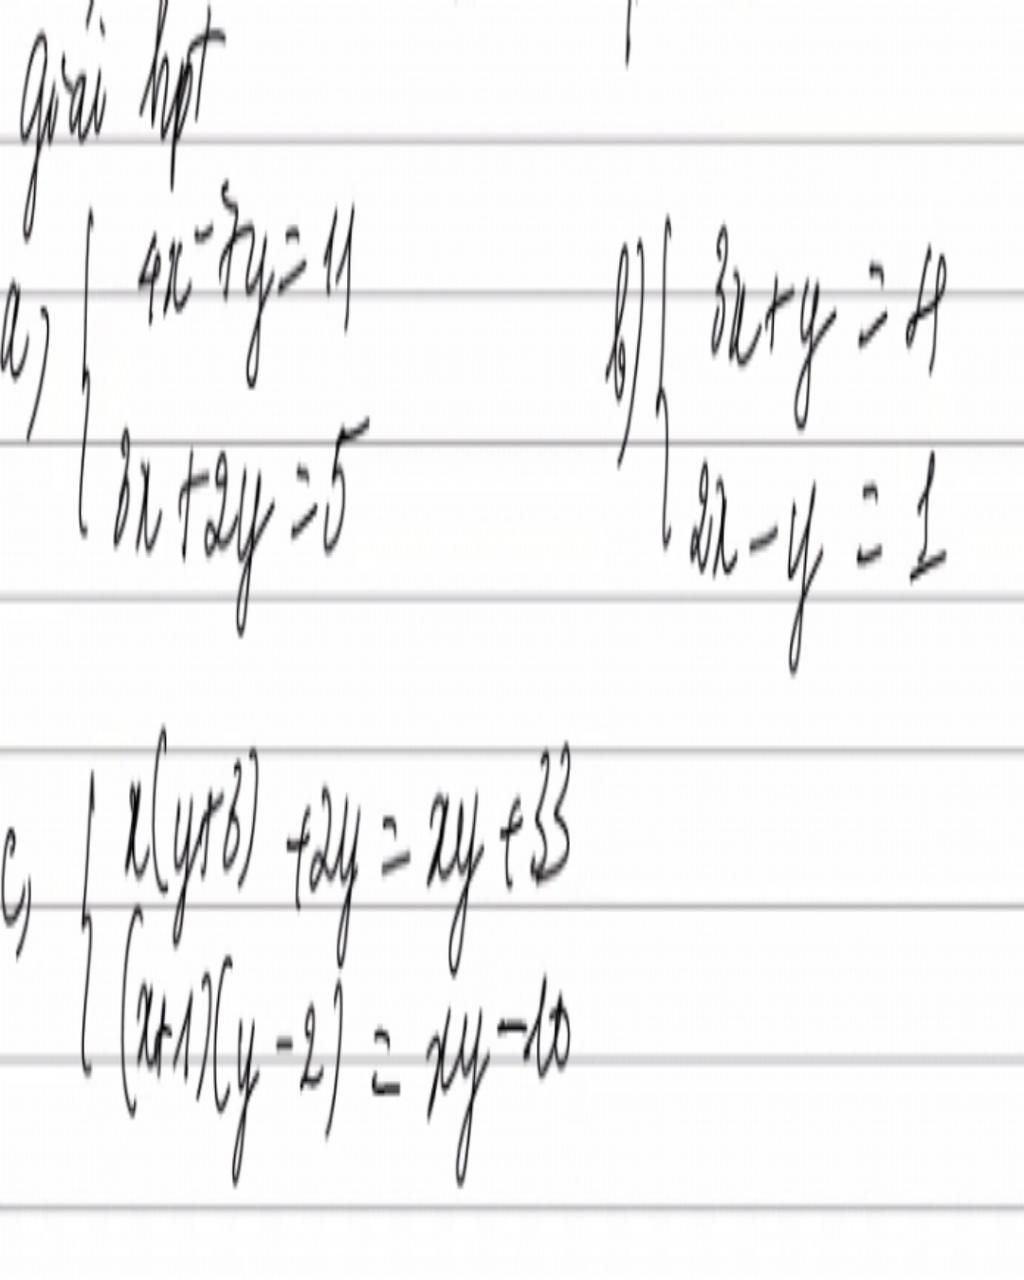 giải hpt
a) { 4x - 7y = 11
3x + 2y = 5
b) { 3x + y =
2x - y = 1
c) { x(y+3) + 2y = xy + 33
(x+1)(y-2) = xy - 10